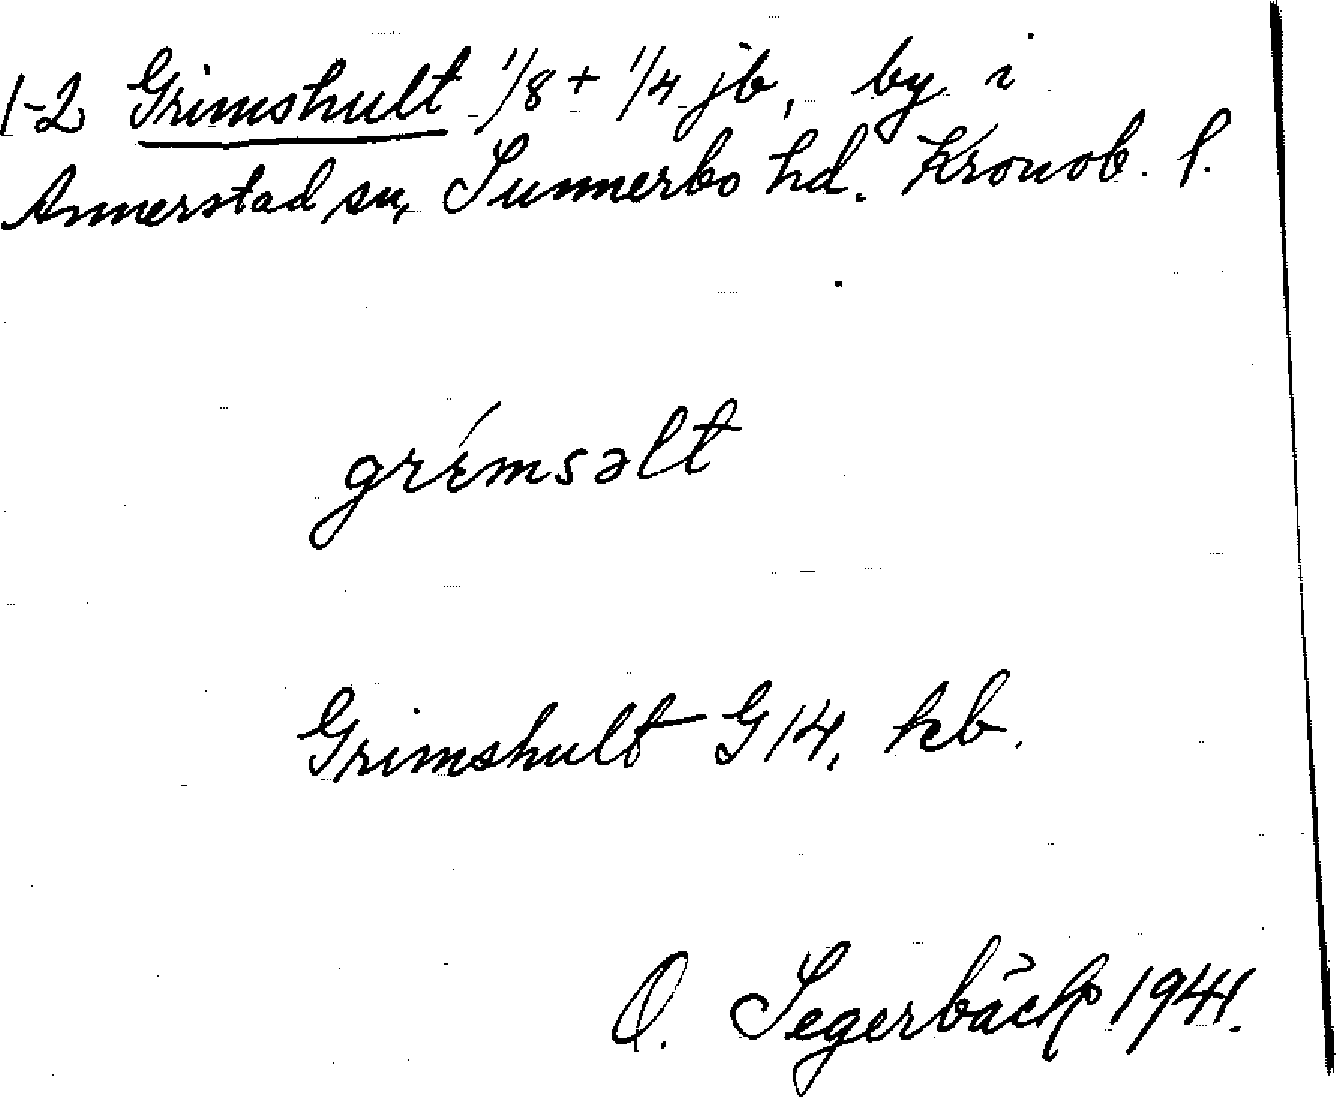 1-2 Grimshult 1/8 + 1/4 jb, by i
Annerstad sn, Sunnerbo hd. Kronob. l.
grímsəlt
Grimshult G14, kb.
O. Segerbäck 1941.